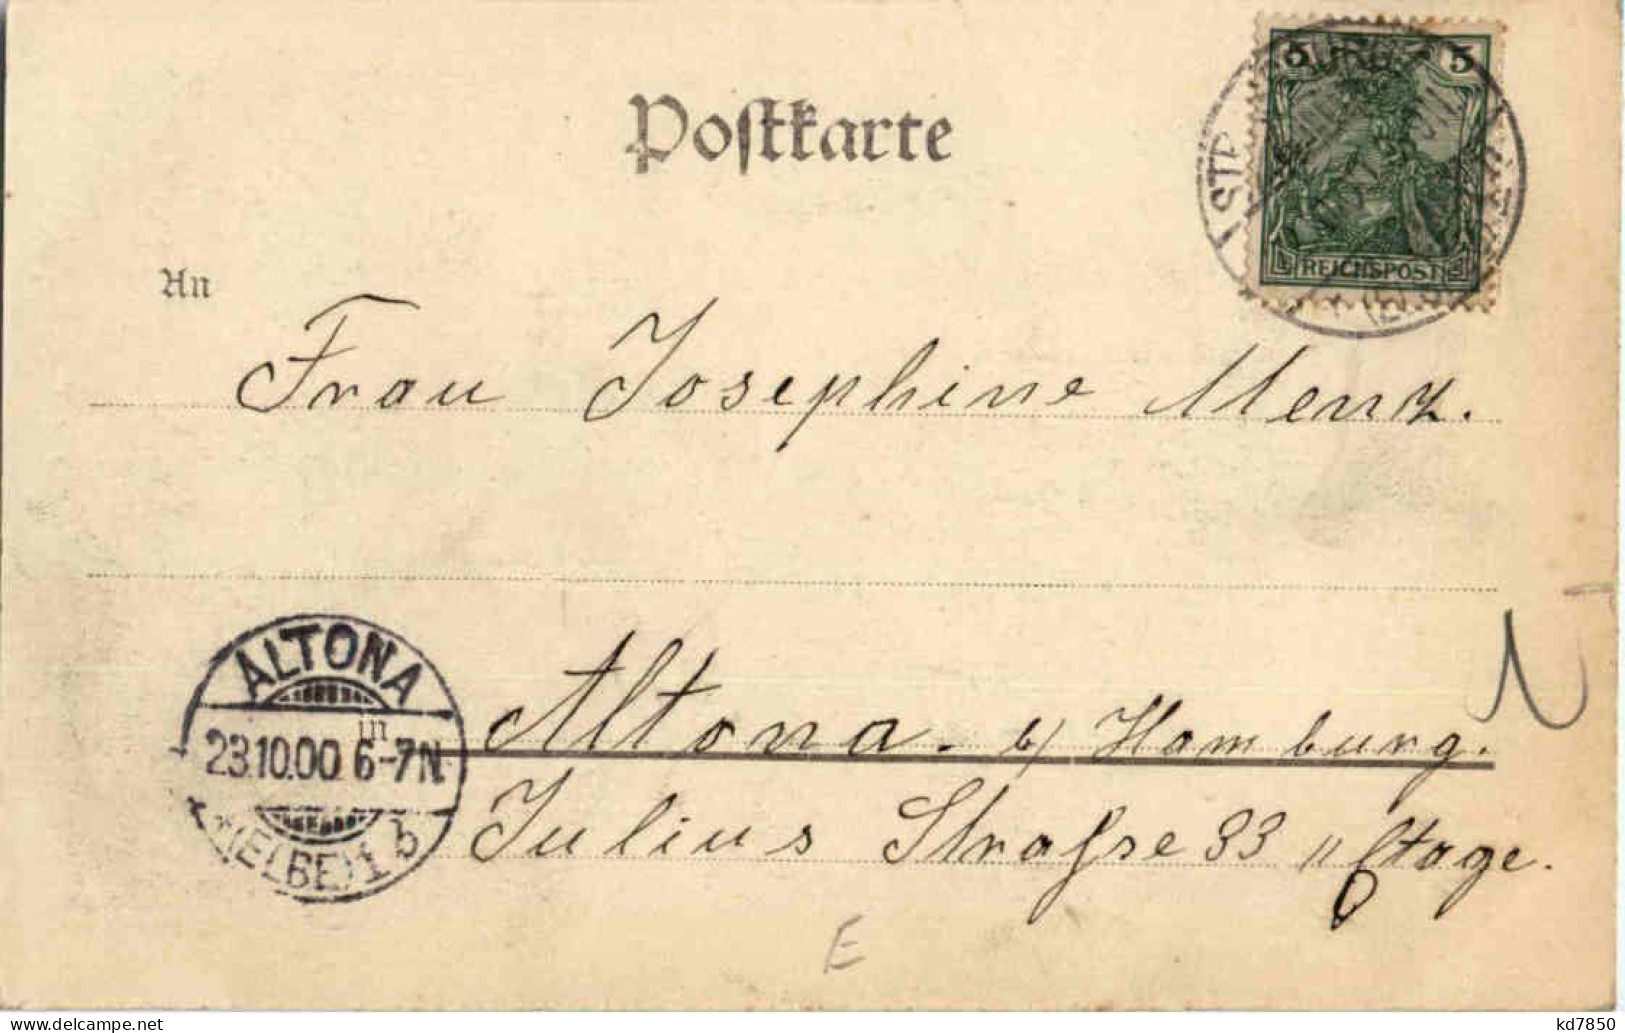 Postkarte
5 5
REICHSPOST
An
Frau Josephine Menz.
ALTONA
23.10.00. 6-7N.
*(ELBE)1 b
Altona. b/ Hamburg.
Julius Straße 33 II Etage.
E
kd7850